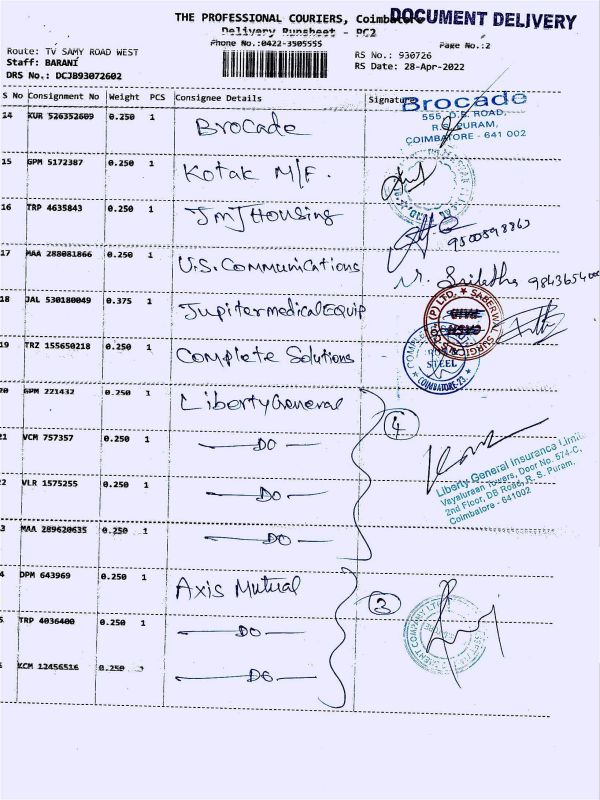 THE PROFESSIONAL COURIERS, Coimbatore
DOCUMENT DELIVERY
Delivery Runsheet - PC2
Phone No:0422-3505555
Page No.:2
Route: TV SAMY ROAD WEST
RS No.: 930726
Staff: BARANI
RS Date: 28-Apr-2022
DRS No.: DCJB93072602
S No Consignment No Weight PCS Consignee Details Signature
14 KUR 526352609 0.250 1 Brocade
Brocade
555, D.B. ROAD,
R.S. PURAM,
COIMBATORE - 641 002
15 GPM 5172387 0.250 1 Kotak M/F.
16 TRP 4635843 0.250 1 JmJ Housing
9500598863
17 MAA 288081866 0.250 1 U.S. Communications
18 JAL 530180049 0.375 1 Jupiter medical Equip
SABERWAL SURGICALS CO. (P) LTD.
19 TRZ 155650218 0.250 1 Complete Solutions
STEEL
COIMBATORE-23
20 GPM 221432 0.250 1 Liberty General
4
21 VCM 757357 0.250 1 DO
Liberty General Insurance Limited
Vayaluraan Towers, Door No. 574-C,
2nd Floor, DB Road, R. S. Puram,
Coimbatore - 641002
2 VLR 1575255 0.250 1 DO
3 MAA 289620635 0.250 1 DO
4 DPM 643969 0.250 1 Axis Mutual
3
5 TRP 4036400 0.250 1 DO
KCM 12456516 0.250 DO